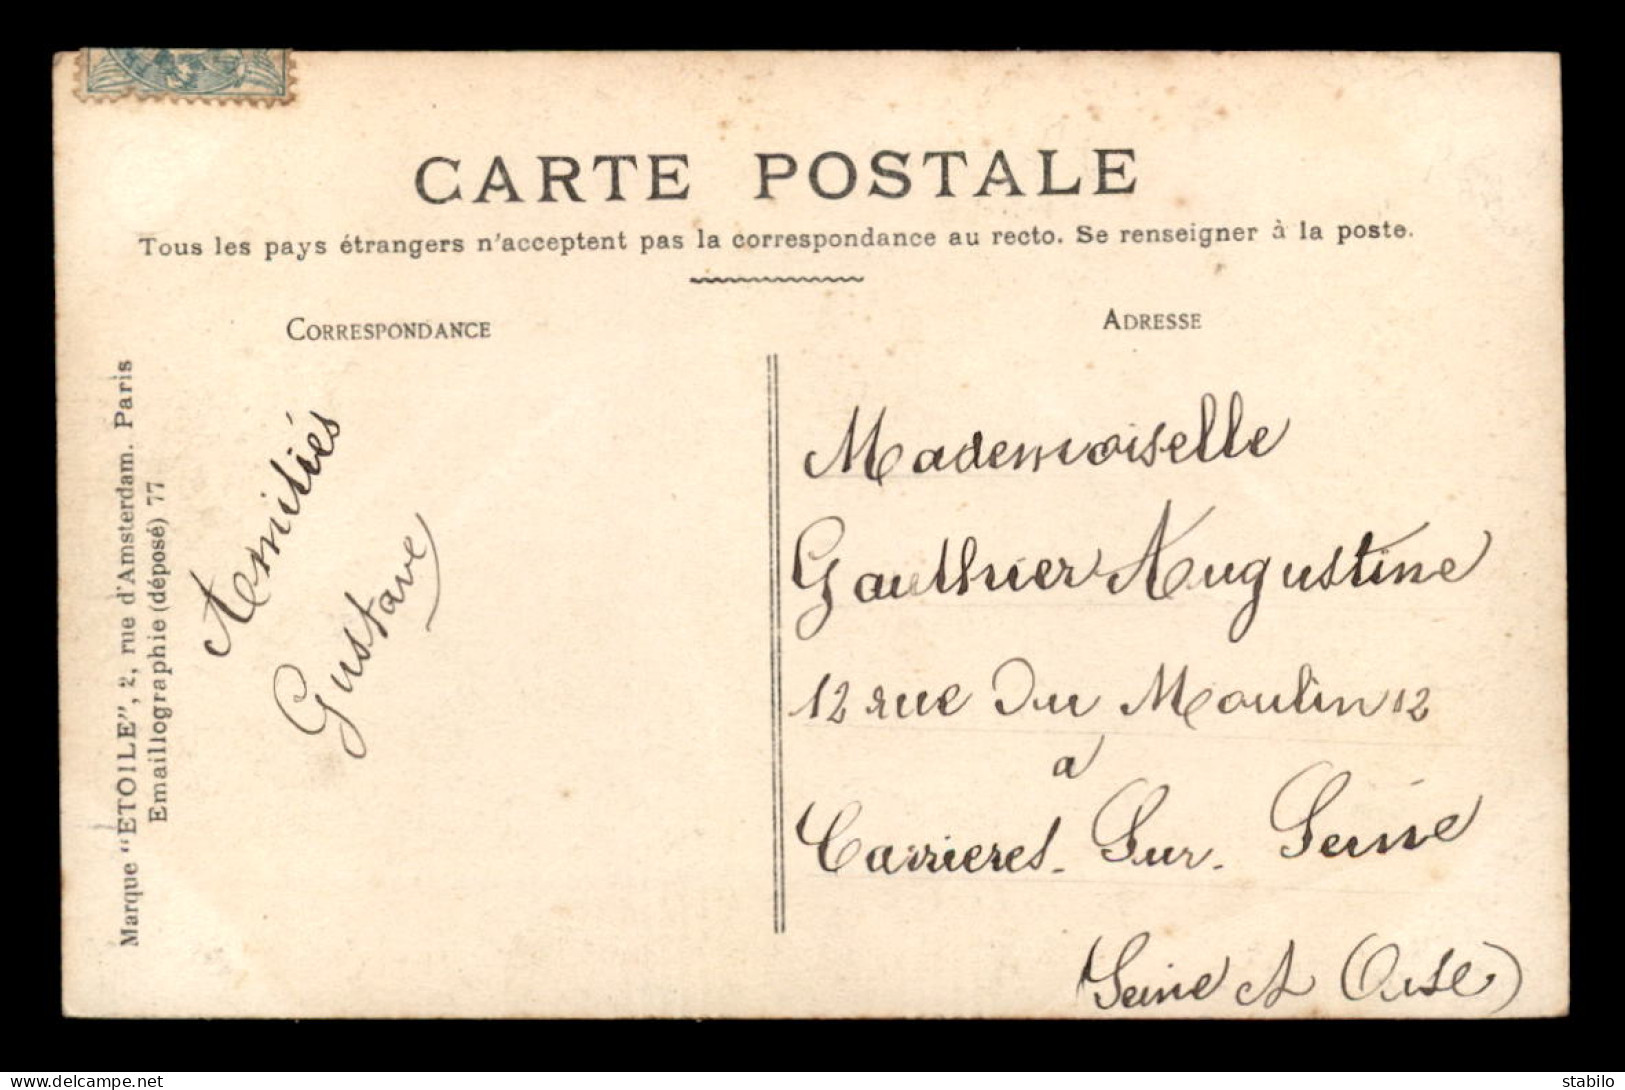 CARTE POSTALE
Tous les pays étrangers n'acceptent pas la correspondance au recto. Se renseigner à la poste.
CORRESPONDANCE
ADRESSE
Marque "ETOILE", 2, rue d'Amsterdam. Paris
Emaillographie (déposé) 77
Amitiés
Gustave
Mademoiselle
Gauthier Augustine
12 rue Du Moulin 12
a
Carrieres - Sur - Seine
Seine et Oise)
delcampe.net
stabilo